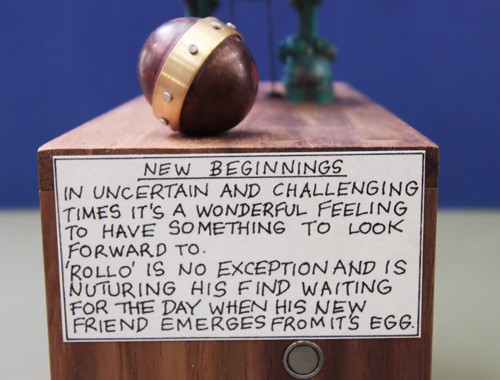 NEW BEGINNINGS
IN UNCERTAIN AND CHALLENGING
TIMES IT'S A WONDERFUL FEELING
TO HAVE SOMETHING TO LOOK
FORWARD TO.
'ROLLO' IS NO EXCEPTION AND IS
NUTURING HIS FIND WAITING
FOR THE DAY WHEN HIS NEW
FRIEND EMERGES FROM IT'S EGG.